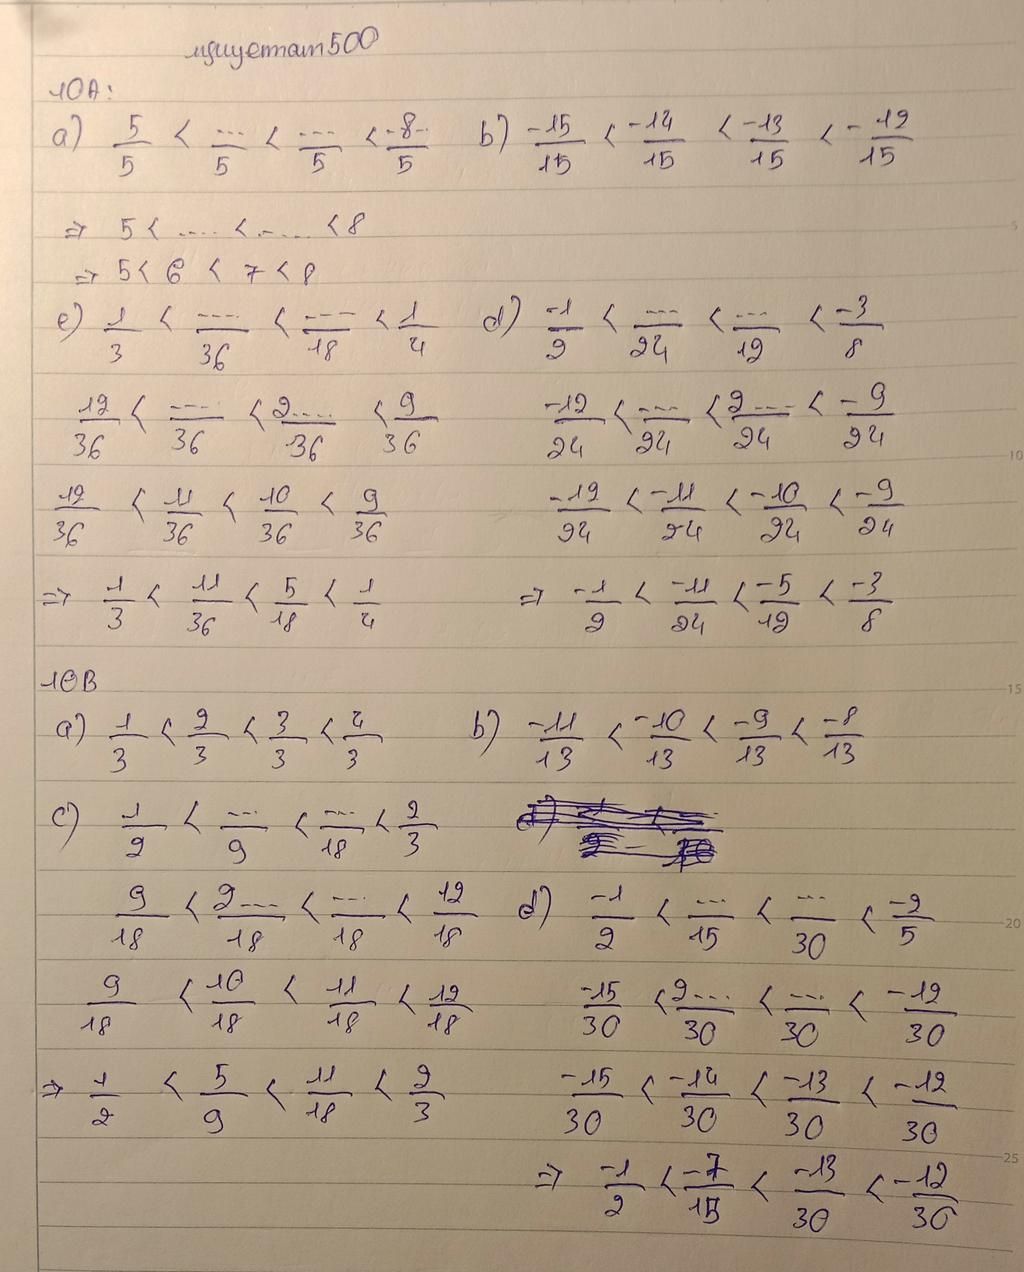 nguyetnat500
10A:
a) 5/5 < .../5 < .../5 < 8/5 b) -15/15 < -14/15 < -13/15 < -12/15
=> 5 < .... < ..... < 8
=> 5 < 6 < 7 < 8
c) 1/3 < ..../36 < ..../18 < 1/4 d) -1/2 < .../24 < .../12 < -3/8
12/36 < .../36 < 2..../36 < 9/36 -12/24 < .../24 < 2.../24 < -9/24
12/36 < 11/36 < 10/36 < 9/36 -12/24 < -11/24 < -10/24 < -9/24
=> 1/3 < 11/36 < 5/18 < 1/4 => -1/2 < -11/24 < -5/12 < -3/8
10B
a) 1/3 < 2/3 < 3/3 < 4/3 b) -11/13 < -10/13 < -9/13 < -8/13
c) 1/2 < .../9 < .../18 < 2/3
9/18 < 2.../18 < .../18 < 12/18 d) -1/2 < .../15 < .../30 < -2/5
9/18 < 10/18 < 11/18 < 12/18 -15/30 < 2.../30 < .../30 < -12/30
=> 1/2 < 5/9 < 11/18 < 2/3 -15/30 < -14/30 < -13/30 < -12/30
=> -1/2 < -7/15 < -13/30 < -12/30